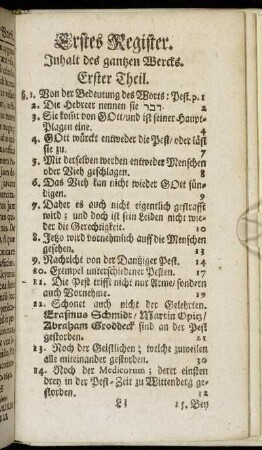 Erstes Register.
Inhalt des gantzen Wercks.
Erster Theil.
§. 1. Von der Bedeutung des Worts: Pest. p. 1
2. Die Hebreer nennen sie דבר 2
3. Sie komt von GOtt/und ist seiner Haupt-
Plagen eine. 4
4. GOtt würckt entweder die Pest/ oder läst
sie zu. 7
5. Mit derselben werden entweder Menschen
oder Vieh geschlagen. 8
6. Das Vieh kan nicht wieder GOtt sün-
digen. 9
7. Daher es auch nicht eigentlich gestrafft
wird; und doch ist sein Leiden nicht wie-
der die Gerechtigkeit. 10
8. Jetzo wird vornehmlich auff die Menschen
gesehen. 13
9. Nachricht von der Dantziger Pest. 14
10. Exempel unterschiedener Pesten. 17
11. Die Pest trifft nicht nur Arme/ sondern
auch Vornehme. 19
12. Schonet auch nicht der Gelehrten.
Erasmus Schmidt/ Martin Opitz/
Abraham Groddeck sind an der Pest
gestorben. 21
13. Noch der Geistlichen; welche zuweilen
alle miteinander gestorben. 30
14. Noch der Medicorum; derer einsten
drey in der Pest-Zeit zu Wittenberg ge-
storben. 12
Ll 15. Bey